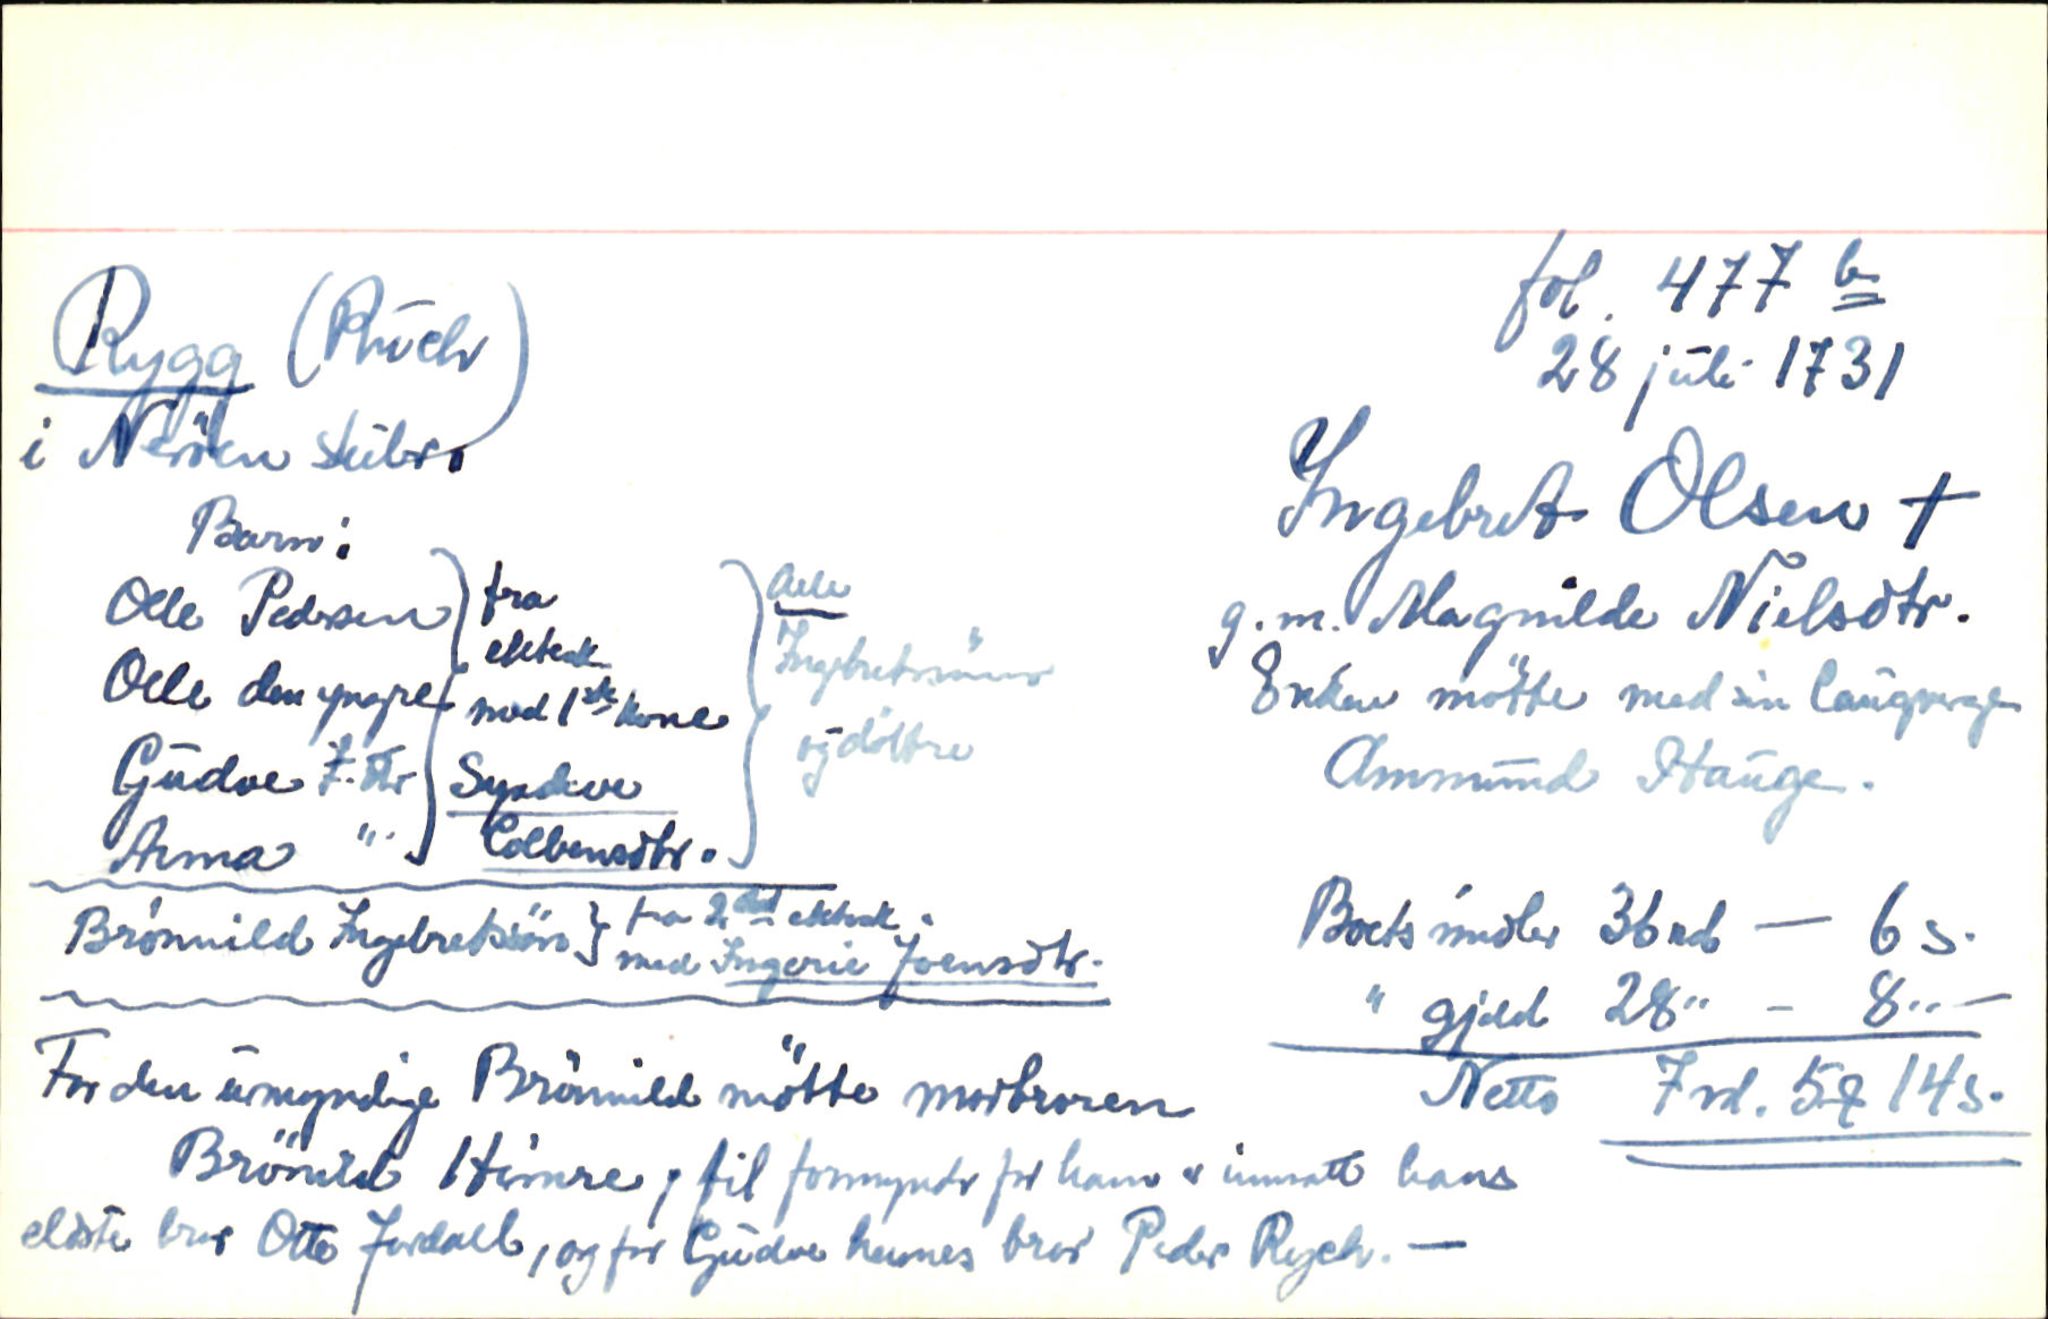 fol. 477 b
28 juli 1731
Rygg (Rüch)
i Neröen skibr.
Ingebret Olsen †
g. m. Magnilde Nielsdtr.
Enken mötte med sin laugverge
Ammund Hauge.
Barn:
Olle Pedersen
Olle den yngre
Gudve I. dtr
Anna "
fra
ektesk.
med 1ste kone
Syndeve
Colbensdtr.
Alle
Ingebretsönner
og döttre
Brönnild Ingebretsön } fra 2det ektesk.
med Ingerie Joensdtr.
Boets midler 36 rd — 6 s.
" gjeld 28 " - 8 " —
Netto 7 rd. 5 14 s.
For den umyndige Brönnild mötte morbroren
Brönild Himre, til formynder for ham er innsatt hans
eldste bror Otte Jordall, og for Gudve hennes bror Peder Rych. —